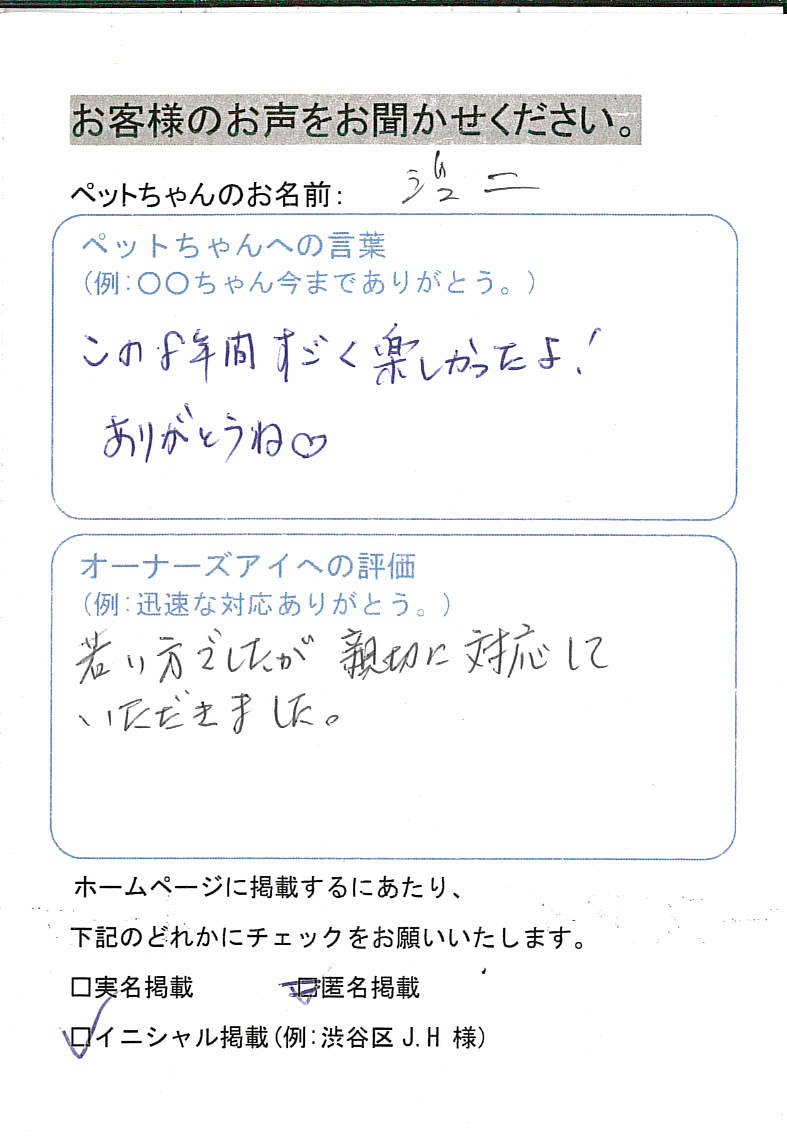 お客様のお声をお聞かせください。
ペットちゃんのお名前: ジュニ
ペットちゃんへの言葉
(例:〇〇ちゃん今までありがとう。)
この 年間すごく楽しかったよ!
ありがとうね♡
オーナーズアイへの評価
(例:迅速な対応ありがとう。)
若い方でしたが 親切に対応して
いただきました。
ホームページに掲載するにあたり、
下記のどれかにチェックをお願いいたします。
□実名掲載 □匿名掲載
☑イニシャル掲載(例:渋谷区 J.H 様)